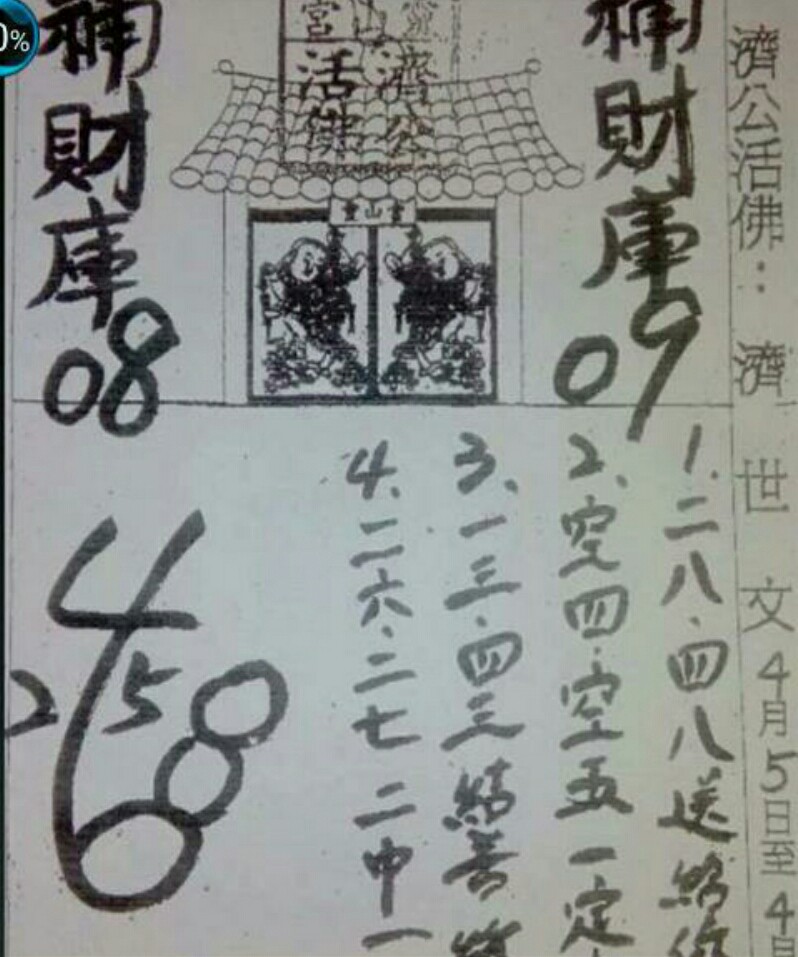 濟公活佛：濟世文4月5日至4月
補財庫
09
濟公
活佛
1.二八.四八送給
2、空四.空五一定
3、一三.四三結善
4、二六.二七二中一
補財庫
08
4
2 5
6